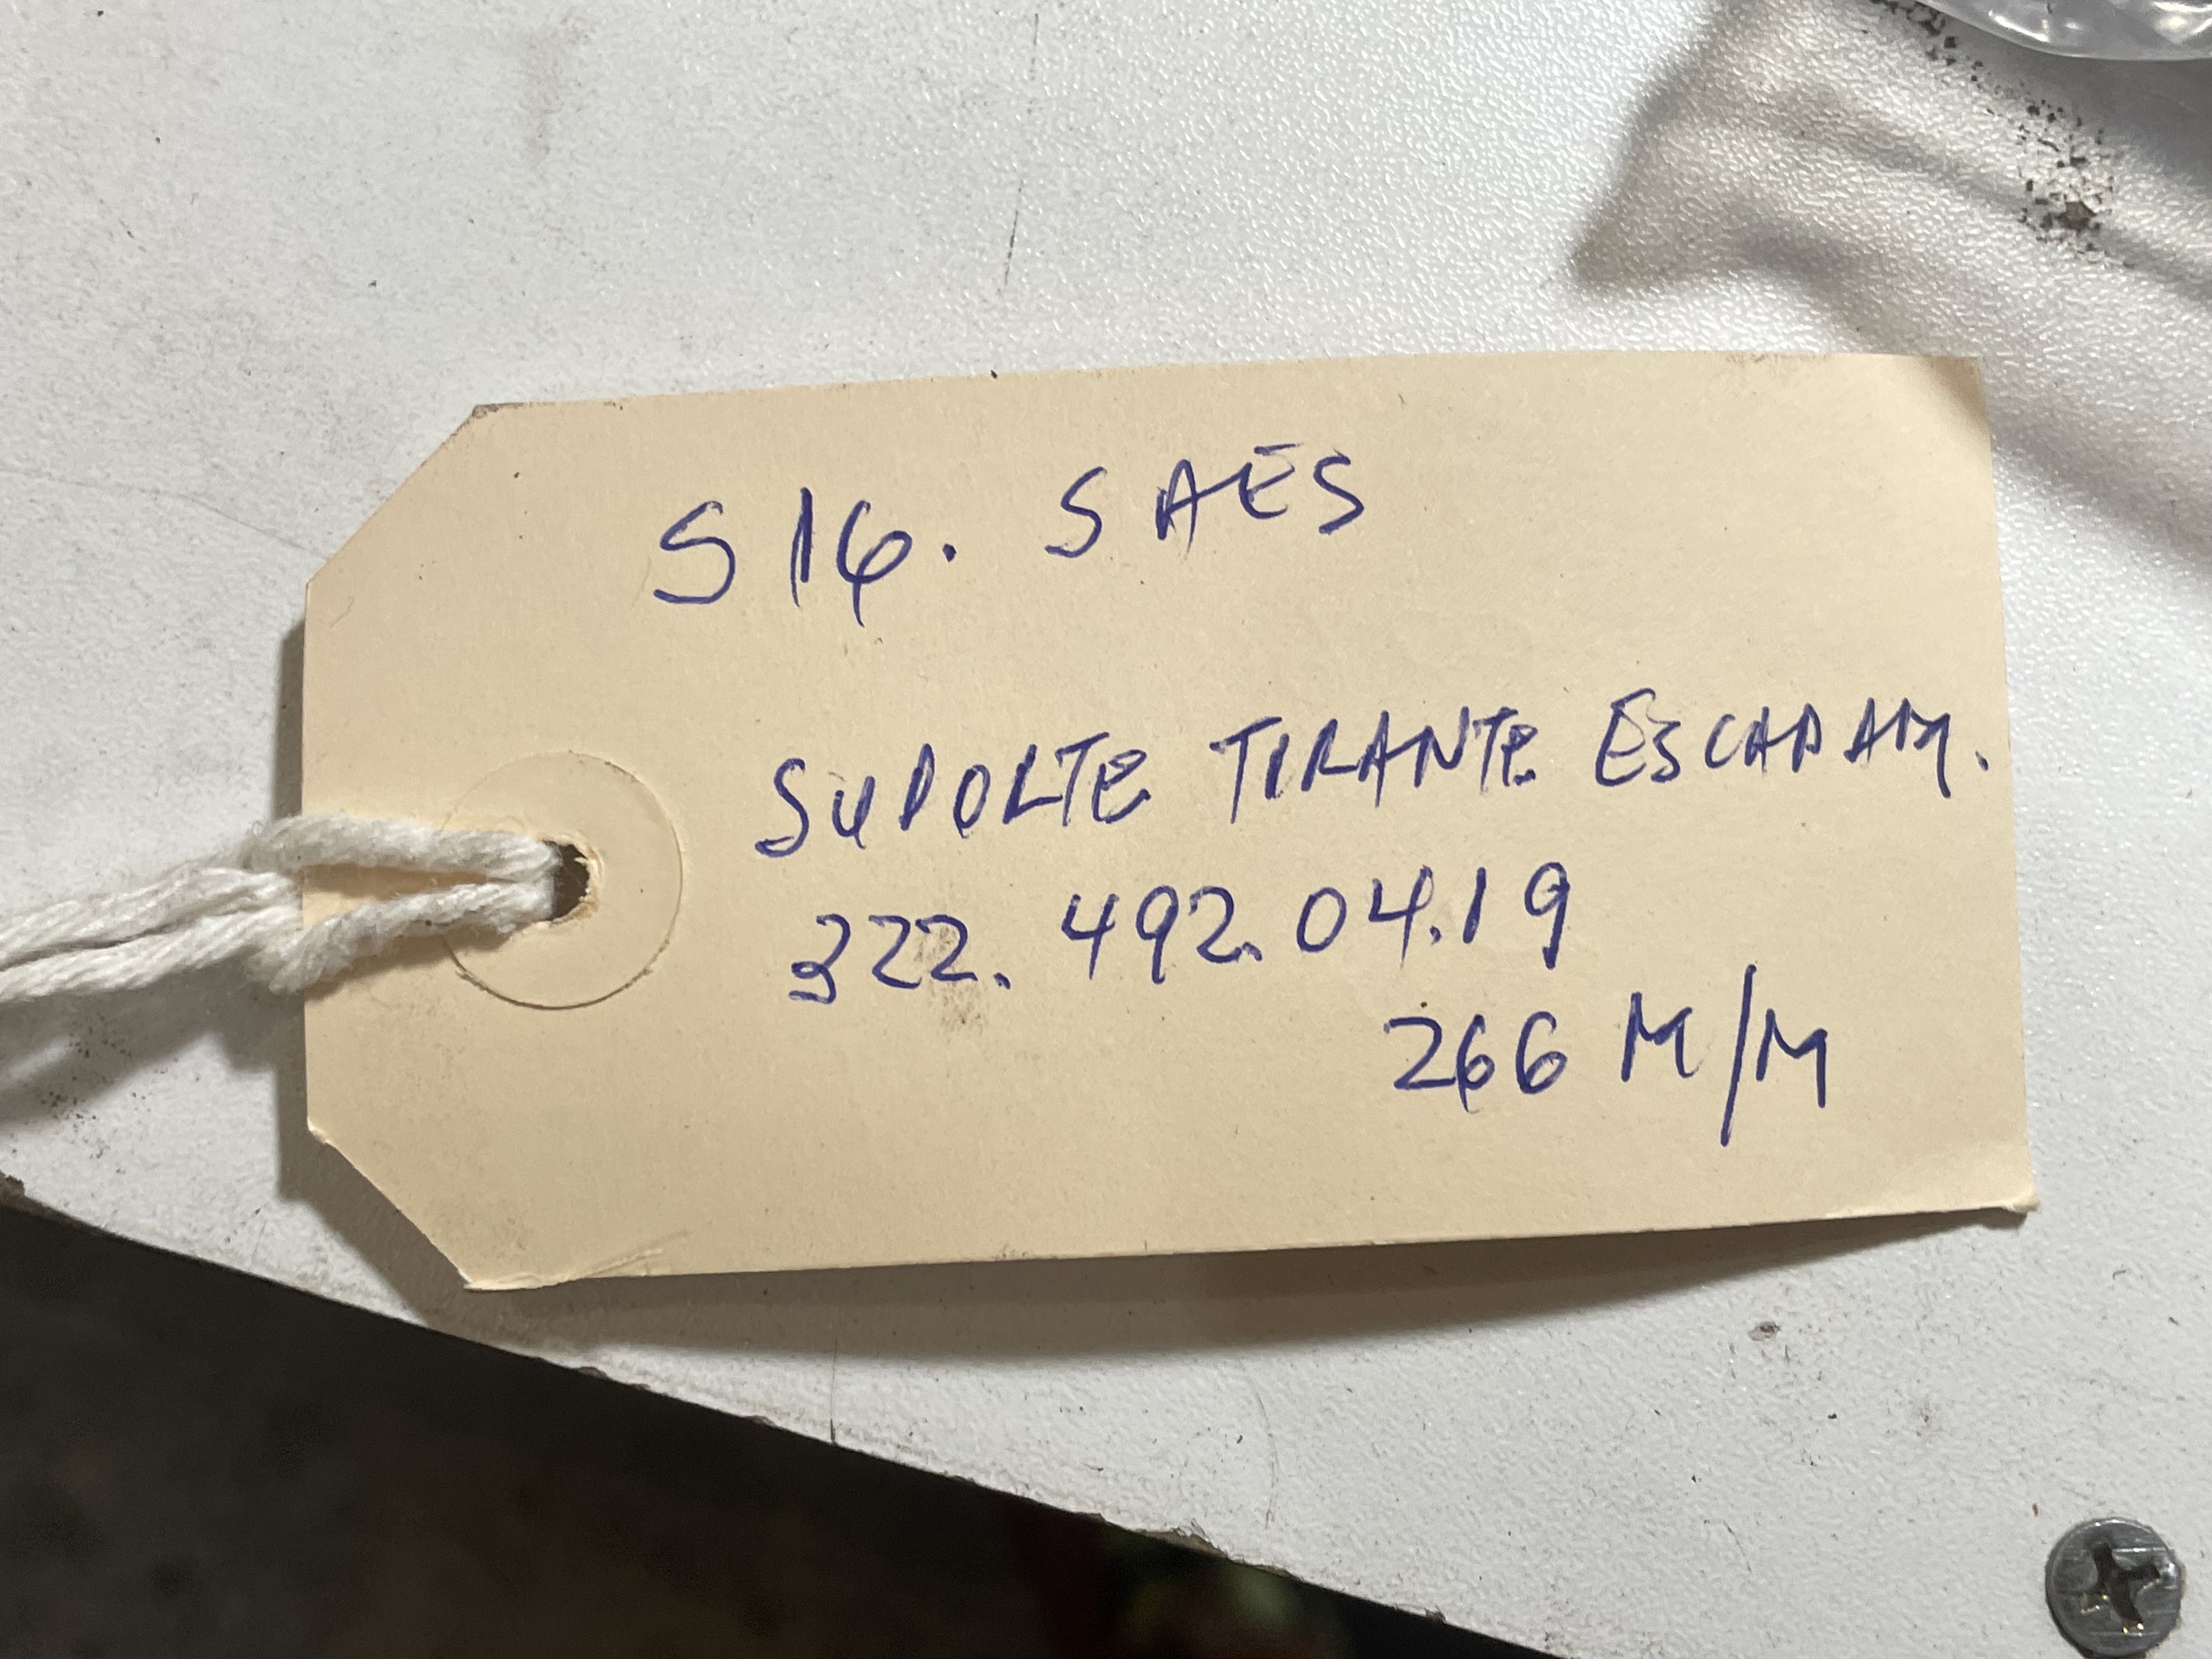 516. SAES
SUPORTE TIRANTE ESCAPAM.
322.492.04.19
266 M/M